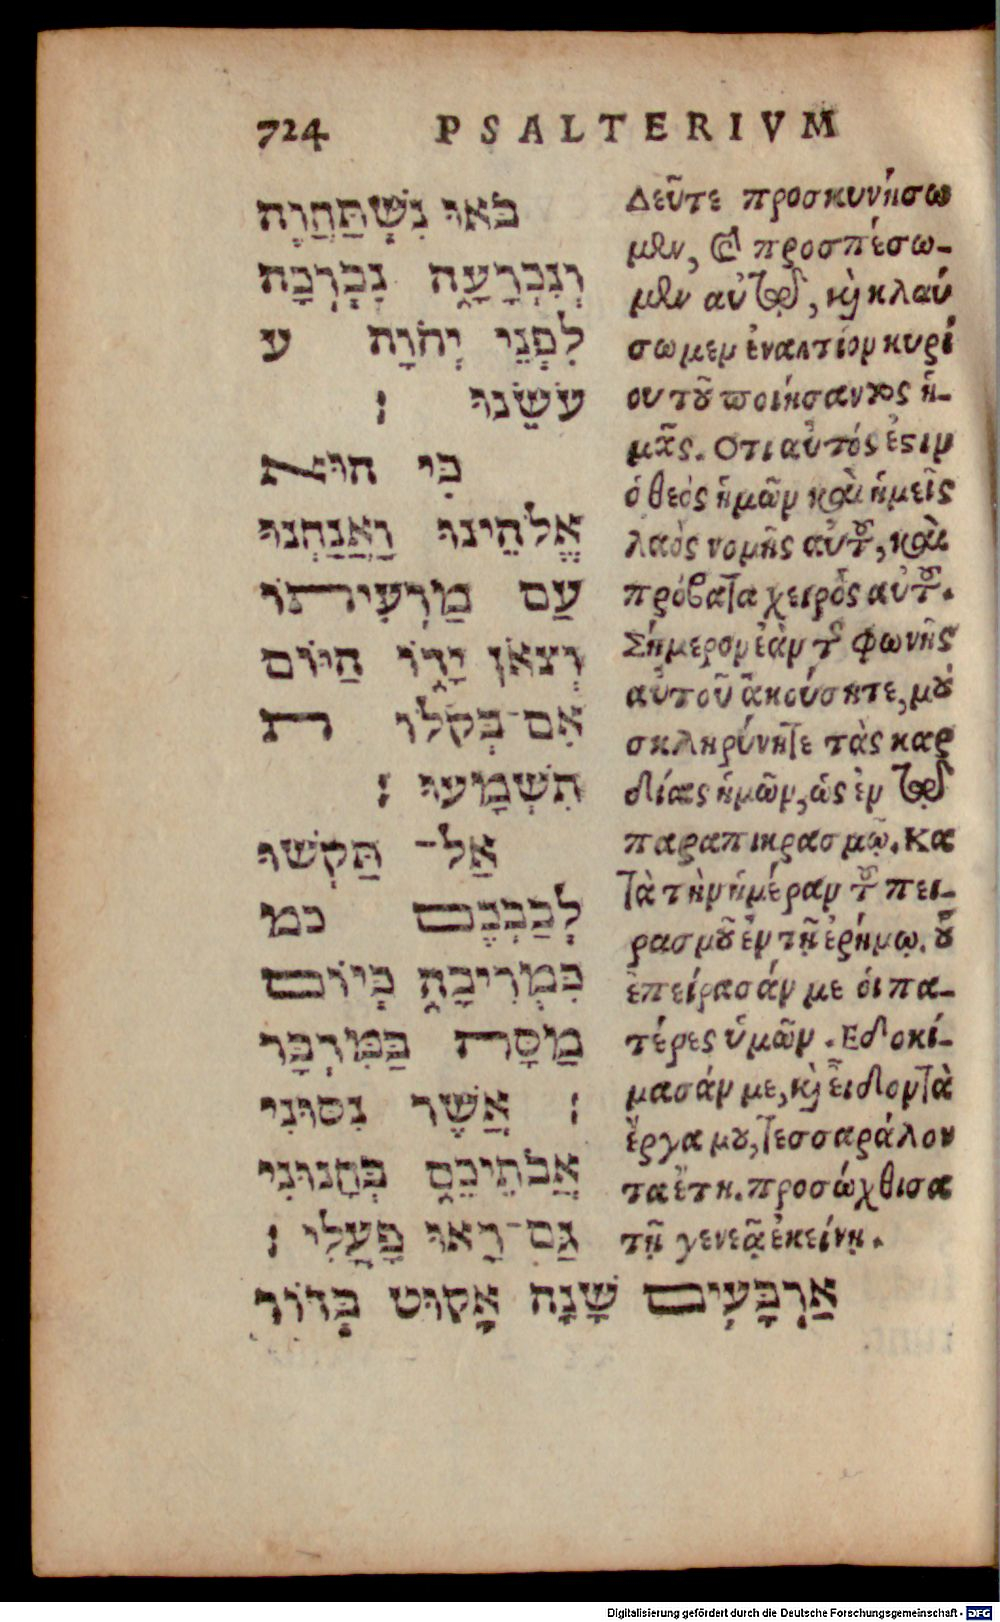 724 PSALTERIVM
בֹּאוּ נִשְׁתַּחֲוֶה
וְנִכְרָעָה נִבְרְכָה
לִפְנֵי יְהֹוָה ע
עֹשֵׂנוּ :
כִּי הוּא
אֱלֹהֵינוּ וַאֲנַחְנוּ
עַם מַרְעִיתוֹ
וְצֹאן יָדוֹ הַיּוֹם
אִם־בְּקֹלוֹ ת
תִשְׁמָעוּ :
אַל־ תַּקְשׁוּ
לְבַבְכֶם כמ
כִּמְרִיבָה כְּיוֹם
מַסָּה בַּמִּדְבָּר
: אֲשֶׁר נִסּוּנִי
אֲבֹתֵיכֶם בְּחָנוּנִי
גַּם־רָאוּ פָעֳלִי :
אַרְבָּעִים שָׁנָה אָקוּט בְּדוֹר
Δεῦτε προσκυνήσω
μεν, καὶ προσπέσω-
μεν αὐτῷ, καὶ κλαύ
σωμεν ἐναντίον κυρί
ου τοῦ ποιήσαντος ἡ-
μᾶς. Οτι αὐτός ἐστιν
ὁ θεός ἡμῶν καὶ ἡμεῖς
λαὸς νομῆς αὐτοῦ, καὶ
πρόβατα χειρὸς αὐτοῦ.
Σήμερον ἐὰν τῆς φωνῆς
αὐτοῦ ἀκούσητε, μὴ
σκληρύνητε τὰς καρ
δίας ἡμῶν, ὡς ἐν τῷ
παραπικρασμῷ. Κα
τὰ τὴν ἡμέραν τοῦ πει-
ρασμοῦ ἐν τῇ ἐρήμῳ. οὗ
ἐπείρασάν με οἱ πα-
τέρες ὑμῶν . Εδοκί-
μασάν με, καὶ εἶδον τὰ
ἔργα μου, τεσσαράκον
τα ἔτη. προσώχθισα
τῇ γενεᾷ ἐκείνῃ.
Digitalisierung gefördert durch die Deutsche Forschungsgemeinschaft - DFG